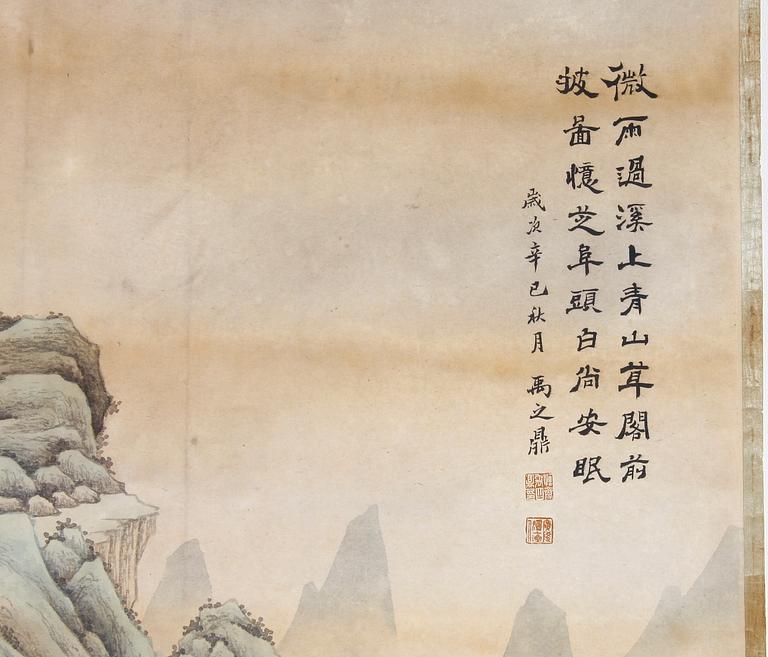 微雨過溪上青山茸閣前
披啚憶芝阜頭白尙安眠
歲次辛巳秋月 禹之鼎